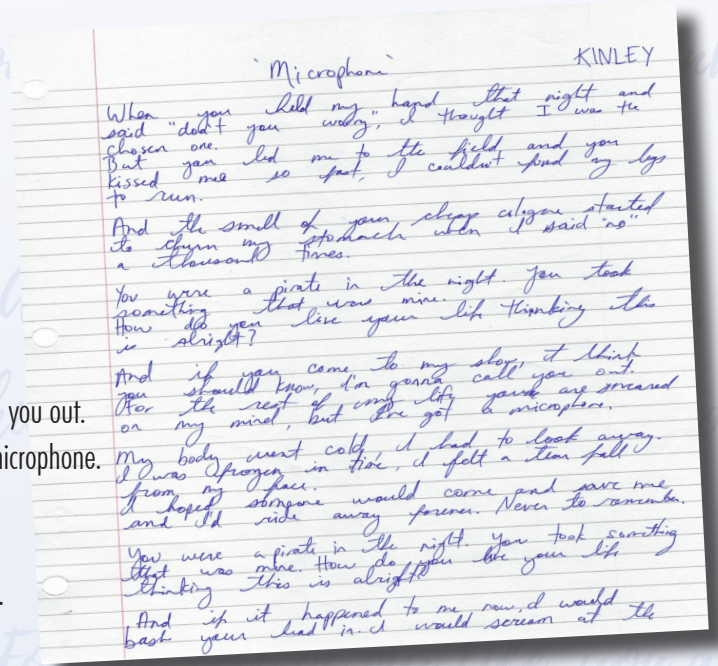 `Microphone`
KINLEY
When you held my hand that night and
said "don't you worry", I thought I was the
chosen one.
But you led me to the field, and you
kissed me so fast, I couldn't find my legs
to run.
And the smell of your cheap cologne started
to churn my stomach when I said "no"
a thousand times.
You were a pirate in the night. You took
something that was mine.
How do you live your life thinking this
is alright?
And if you come to my show, I think
you should know, I'm gonna call you out.
For the rest of my life you are smeared
on my mind, but I've got a microphone.
My body went cold, I had to look away.
I was frozen in time, I felt a tear fall
from my face.
I hoped someone would come and save me
and I'd ride away forever. Never to remember.
You were a pirate in the night. You took something
that was mine. How do you live your life
thinking this is alright?
And if it happened to me now, I would
bash your head in. I would scream at the
you out.
microphone.